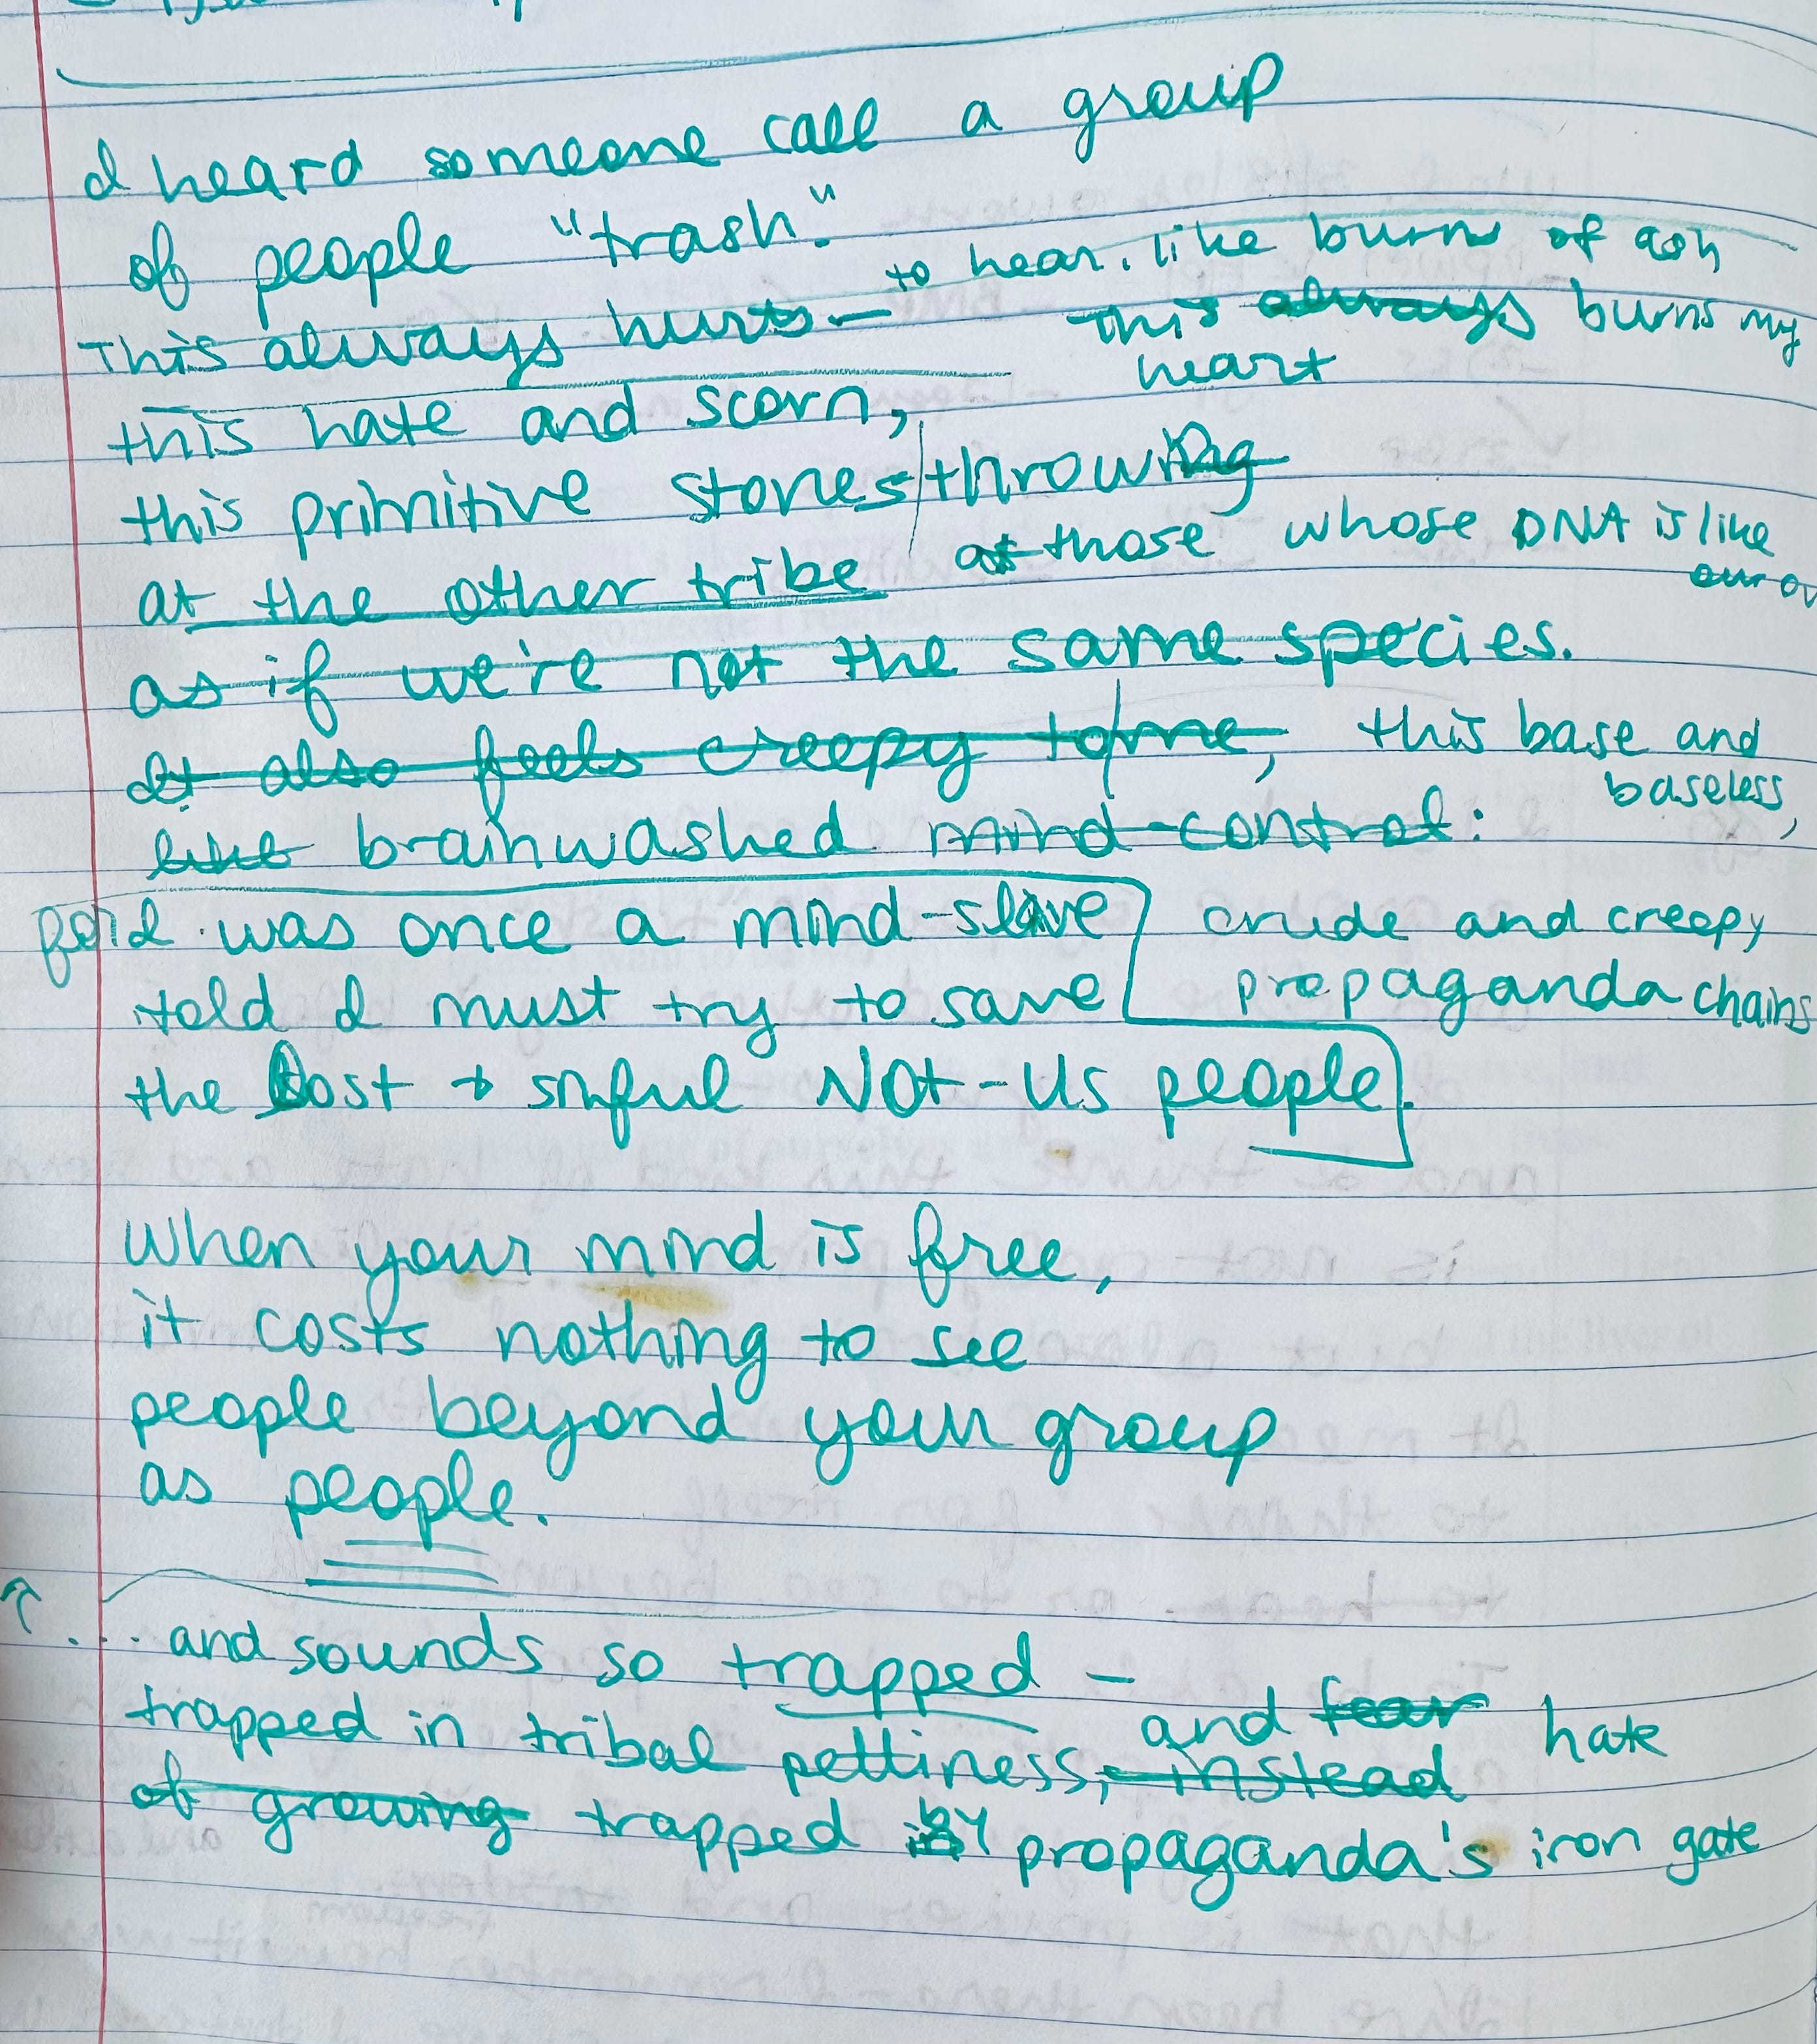 I heard someone call a group
of people "trash."
This always hurts — to hear. like burns of ash
This always burns my
heart
this hate and scorn,
this primitive stones throwing
at the other tribe at those whose DNA is like
our
as if we're not the same species.
It also feels creepy to me, this base and
baseless,
like brainwashed mind-control:
for I was once a mind-slave crude and creepy
told I must try to save propaganda chains
the Lost + sinful Not-Us people.
When your mind is free,
it costs nothing to see
people beyond your group
as people.
↑ .... and sounds so trapped —
trapped in tribal pettiness, and fear hate
instead
of growing trapped by propaganda's iron gate